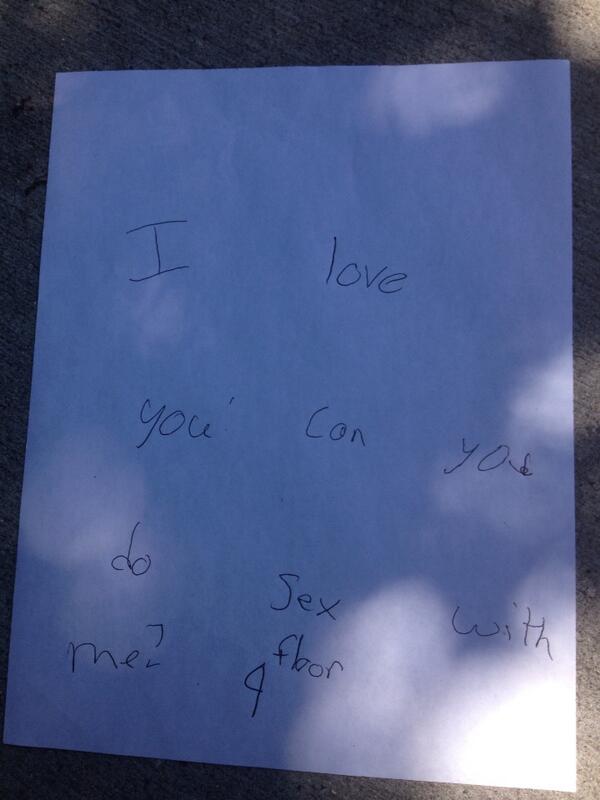 I love
you' can you
do sex with
me? 9 floor